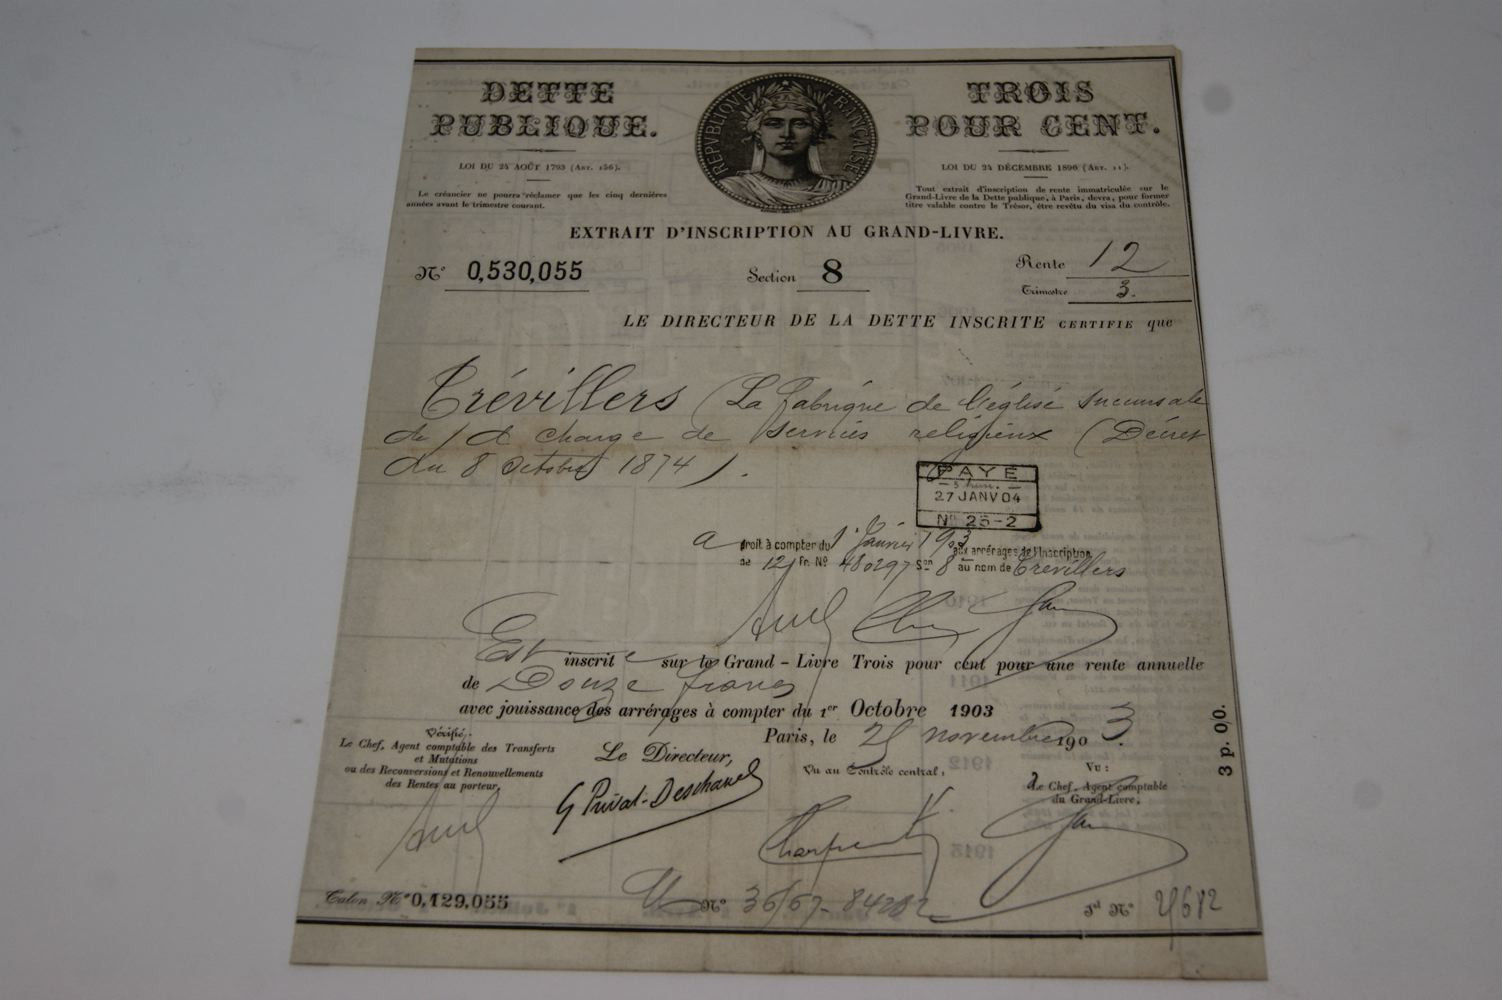 DETTE
PUBLIQUE.
LOI DU 24 AOÛT 1793 (ART. 156).
Le créancier ne pourra réclamer que les cinq dernières
années avant le trimestre courant.
REPVBLIQVE FRANÇAISE
TROIS
POUR CENT.
LOI DU 24 DÉCEMBRE 1896 (ART. 11).
Tout extrait d'inscription de rente immatriculée sur le
Grand-Livre de la Dette publique, à Paris, devra, pour former
titre valable contre le Trésor, être revêtu du visa du contrôle.
EXTRAIT D'INSCRIPTION AU GRAND-LIVRE.
N° 0,530,055
Section 8
Rente 12
Trimestre 3.
LE DIRECTEUR DE LA DETTE INSCRITE CERTIFIE que
Trévillers (La fabrique de l'église succursale
de) à charge de services religieux (Décret
du 8 Octobre 1874).
PAYÉ
27 JANV 04
N° 25-2
a droit à compter du 1er Janvier 1903 aux arrérages de l'Inscription
de 12 Fr. N° 480297 Son 8 au nom de Trévillers
Est inscrite sur le Grand-Livre Trois pour cent pour une rente annuelle
de Douze francs
avec jouissance des arrérages à compter du 1er Octobre 1903
Paris, le novembre 1903.
Vérifié:
Le Chef, Agent comptable des Transferts
et Mutations
ou des Reconversions et Renouvellements
des Rentes au porteur,
Le Directeur,
G Privat-Deschanel
Vu au Contrôle central,
Charpentier
Vu:
Le Chef, Agent comptable
du Grand-Livre,
3 p. 0/0.
Talon N° 0,129,055
N° 36/67-84282
Jal N°